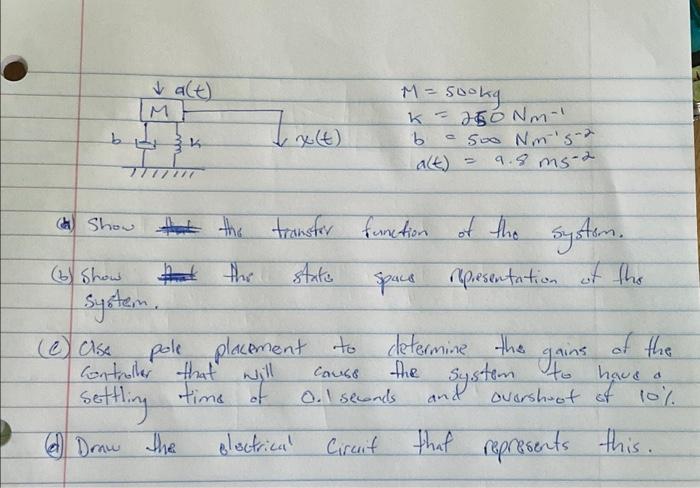 ↓ a(t)
M
b
k
↓ x(t)
M = 500kg
k = 250 Nm⁻¹
b = 500 Nm⁻¹s⁻²
a(t) = 9.8 ms⁻²
(a) Show the transfer function of the system.
(b) Show the state space representation of the
system.
(c) Use pole placement to determine the gains of the
controller that will cause the system to have a
settling time of 0.1 seconds and overshoot of 10%.
(d) Draw the electrical circuit that represents this.